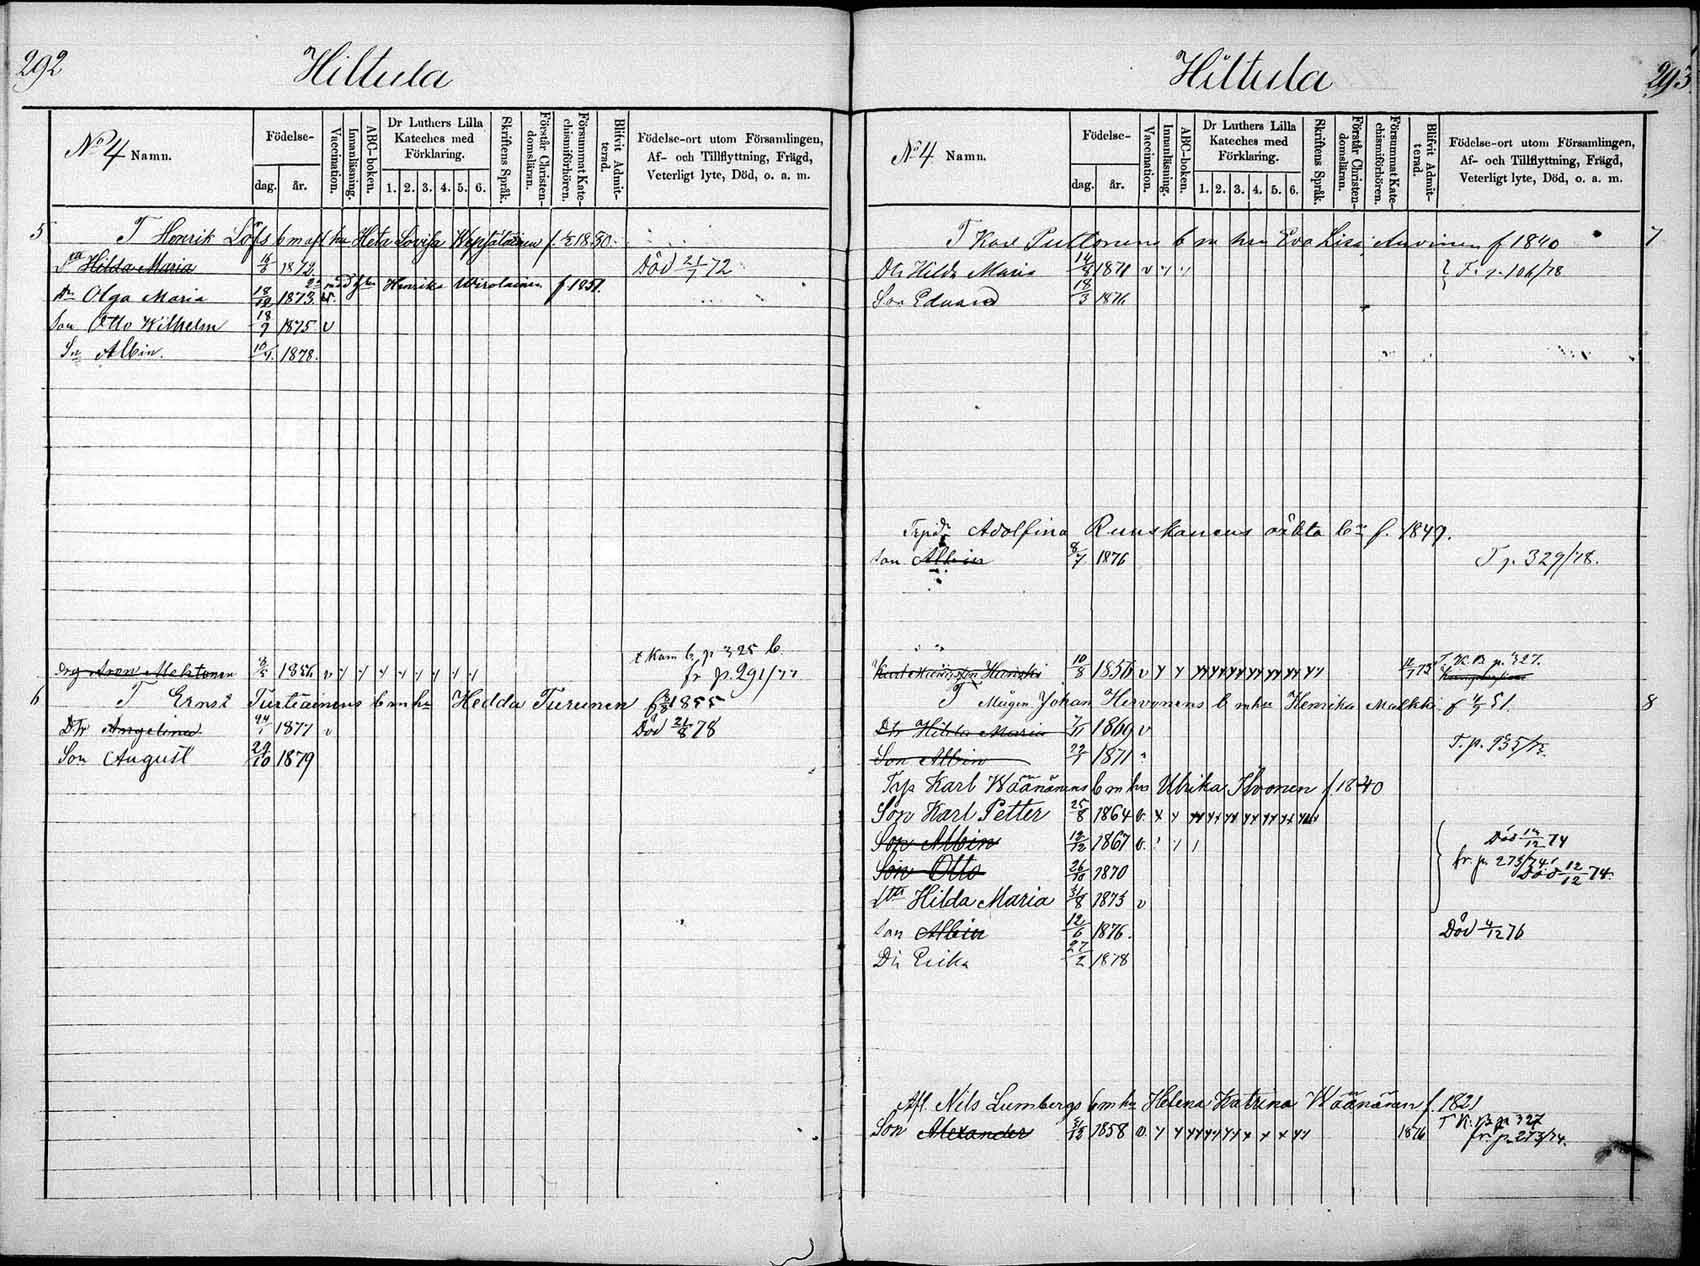 292
Hiltula
No 4 Namn.
Födelse-
dag.
år.
Vaccination.
Innanläsning.
ABC-boken.
Dr Luthers Lilla
Kateches med
Förklaring.
1. 2. 3. 4. 5. 6.
Skriftens Språk.
Förstår Christen-
domsläran.
Försummat Kate-
chismiförhören.
Blifvit Admit-
terad.
Födelse-ort utom Församlingen,
Af- och Tillflyttning, Frägd,
Veterligt lyte, Död, o. a. m.
5 T Henrik Löfs b m afl hu Heta Lovisa
Hilda Maria 1872 Död 21/7 72
2o med hu Henrika f 1851.
Olga Maria 18/12 1873
Son Otto Wilhelm 18/7 1875 v
Sn Albin. 1878.
p 325 b.
Aron 1856 v fr p. 291/77
6 T Ernst Turtiainens b m hu Hedda Turunen 1855
Dtr Angelina 1877 v Död 21/8 78
Son August 29/10 1879
293
Hiltula
No 4 Namn.
Födelse-
dag.
år.
Vaccination.
Innanläsning.
ABC-boken.
Dr Luthers Lilla
Kateches med
Förklaring.
1. 2. 3. 4. 5. 6.
Skriftens Språk.
Förstår Christen-
domsläran.
Försummat Kate-
chismiförhören.
Blifvit Admit-
terad.
Födelse-ort utom Församlingen,
Af- och Tillflyttning, Frägd,
Veterligt lyte, Död, o. a. m.
T Karl Puttonens b m hu Eva Lisa Auvinen f 1840 7
Dtr Hilda Maria 14/8 1871 v T. p. 106/78
Son Eduard 18/3 1876
Adolfina Ruuskanens oäkta bn f. 1849.
Son Albin 8/7 1876 T p. 329/78.
10/8 1856 v T. K B p. 327.
T Mågen Johan Hervonens b m hu Henrika Malkki f 4/7 51. 8
Dtr Hilda Maria 1869 v
Son Albin 1871 T. p. 935/75
Trp Karl Wäänänens b m hu Ulrika Ihvonen f 1840
Son Karl Petter 25/8 1864 v
Son Albin 12/12 1867 v Död 14/12 74
Son Otto 26/10 1870 fr. p. 273/74. Död 12/12 74.
Dtr Hilda Maria 31/8 1873 v
Son Albin 12/6 1876. Död 4/12 76
Dtr Erika 27/2 1878
Afl. Nils Lumbergs b m hu Helena Katrina Wäänänen f. 1821
Son Alexander 1858 v. 1876 T K. B p 327
fr. p. 273/74.